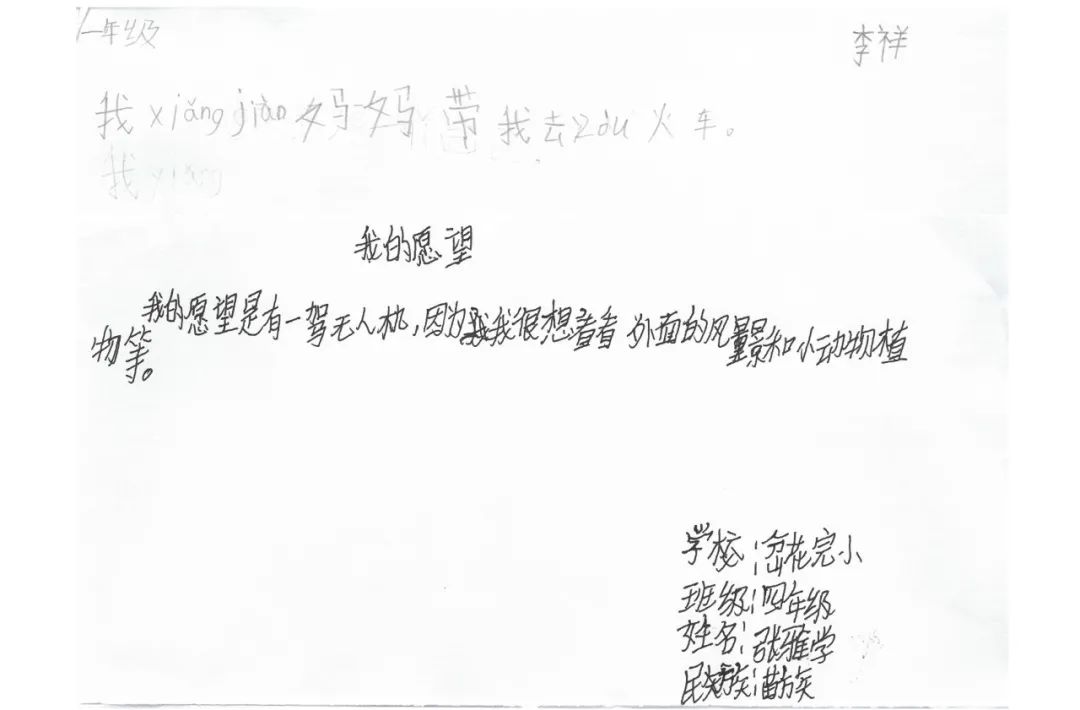 一年级
李祥
我xiǎng jiào妈妈带我去zòu火车。
我xiǎng
我的愿望
我的愿望是有一驾无人机,因为我我很想看看外面的风景和小动物植
物等。
学校:岔花完小
班级:四年级
姓名:张雅学
民族:苗族